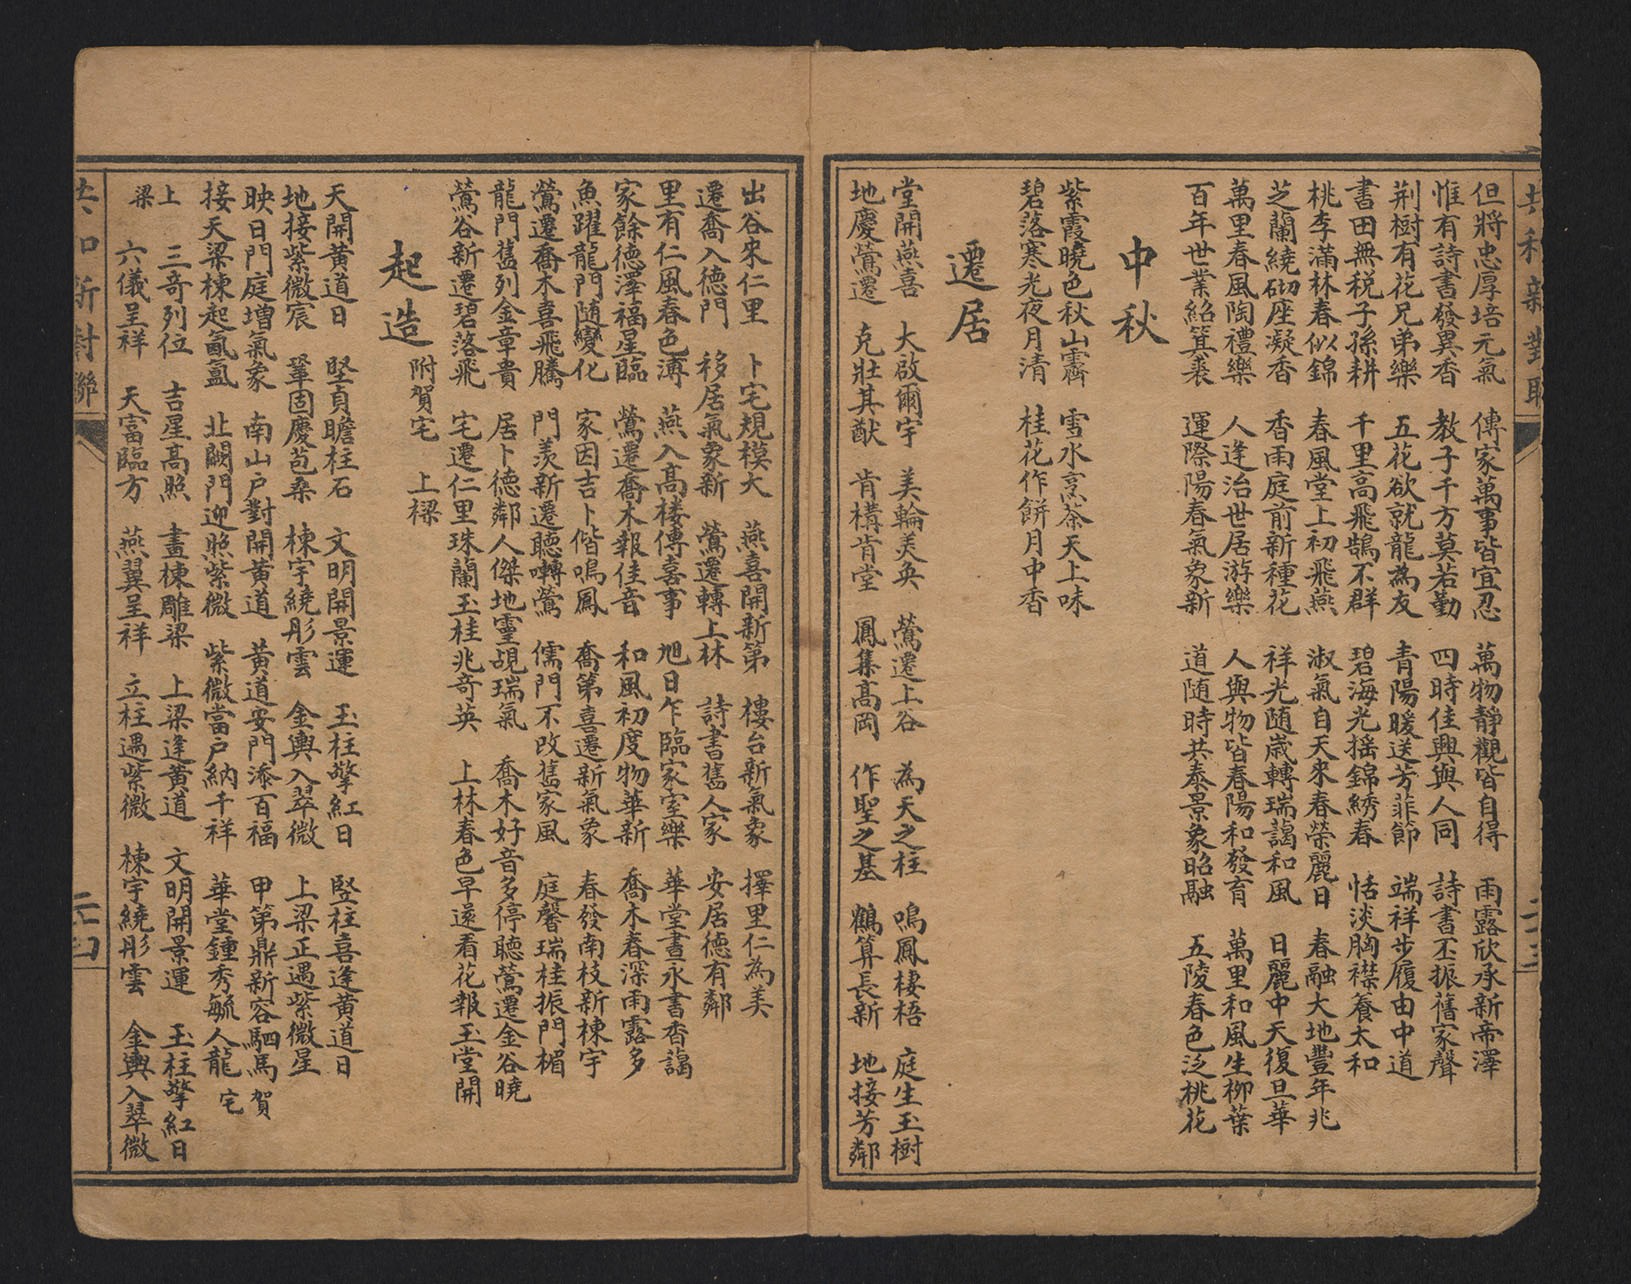 共和新對聯
二十三
但將忠厚培元氣 傳家萬事皆宜忍 萬物靜觀皆自得 雨露欣承新帝澤
惟有詩書發異香 教子千方莫若勤 四時佳興與人同 詩書丕振舊家聲
荆樹有花兄弟樂 五花欲就龍為友 青陽暖送芳菲節 端祥步履由中道
書田無税子孫耕 千里高飛鵠不群 碧海光摇錦綉春 恬淡胸襟養太和
桃李滿林春似錦 春風堂上初飛燕 淑氣自天來春榮麗日 春融大地豐年兆
芝蘭繞砌座凝香 香雨庭前新種花 祥光随歲轉瑞靄和風 日麗中天復旦華
萬里春風陶禮樂 人逢治世居游樂 人與物皆春陽和發育 萬里和風生柳葉
百年世業紹箕裘 運際陽春氣象新 道随時共泰景象昭融 五陵春色泛桃花
中秋
紫霞曉色秋山霽 雪水烹茶天上味
碧落寒光夜月清 桂花作餅月中香
遷居
堂開燕喜 大啟爾宇 美輪美奐 鶯遷上谷 為天之柱 鳴鳳棲梧 庭生玉樹
地慶鶯遷 克壯其猷 肯構肯堂 鳳集高岡 作聖之基 鶴算長新 地接芳鄰
出谷宋仁里 卜宅規模大 燕喜開新第 樓台新氣象 擇里仁為美
遷喬入德門 移居氣象新 鶯遷轉上林 詩書舊人家 安居德有鄰
里有仁風春色溥 燕入高楼傳喜事 旭日乍臨家室樂 華堂晝永書香靄
家餘德澤福星臨 鶯遷喬木報佳音 和風初度物華新 喬木春深雨露多
魚躍龍門随變化 家因吉卜偕鳴鳳 喬第喜遷新氣象 春發南枝新棟宇
鶯遷喬木喜飛騰 門羨新遷聽囀鶯 儒門不改舊家風 庭馨瑞桂振門楣
龍門舊列金章貴 居卜德鄰人傑地靈覘瑞氣 喬木好音多停聽鶯遷金谷曉
鶯谷新遷碧落飛 宅遷仁里珠蘭玉桂兆奇英 上林春色早還看花報玉堂開
起造 附賀宅 上樑
天開黃道日 堅貞瞻柱石 文明開景運 玉柱擎紅日 竪柱喜逢黃道日
地接紫微宸 鞏固慶苞桑 棟宇繞彤雲 金輿入翠微 上梁正遇紫微星
映日門庭增氣象 南山户對開黃道 黃道安門添百福 甲第鼎新容駟馬 賀
接天梁棟起氤氳 北闕門迎照紫微 紫微當户納千祥 華堂鍾秀毓人龍 宅
上梁 三奇列位 吉星高照 畫棟雕梁 上梁逢黃道 文明開景運 玉柱擎紅日
六儀呈祥 天富臨方 燕翼呈祥 立柱遇紫微 棟宇繞彤雲 金輿入翠微
共和新對聯
二十四